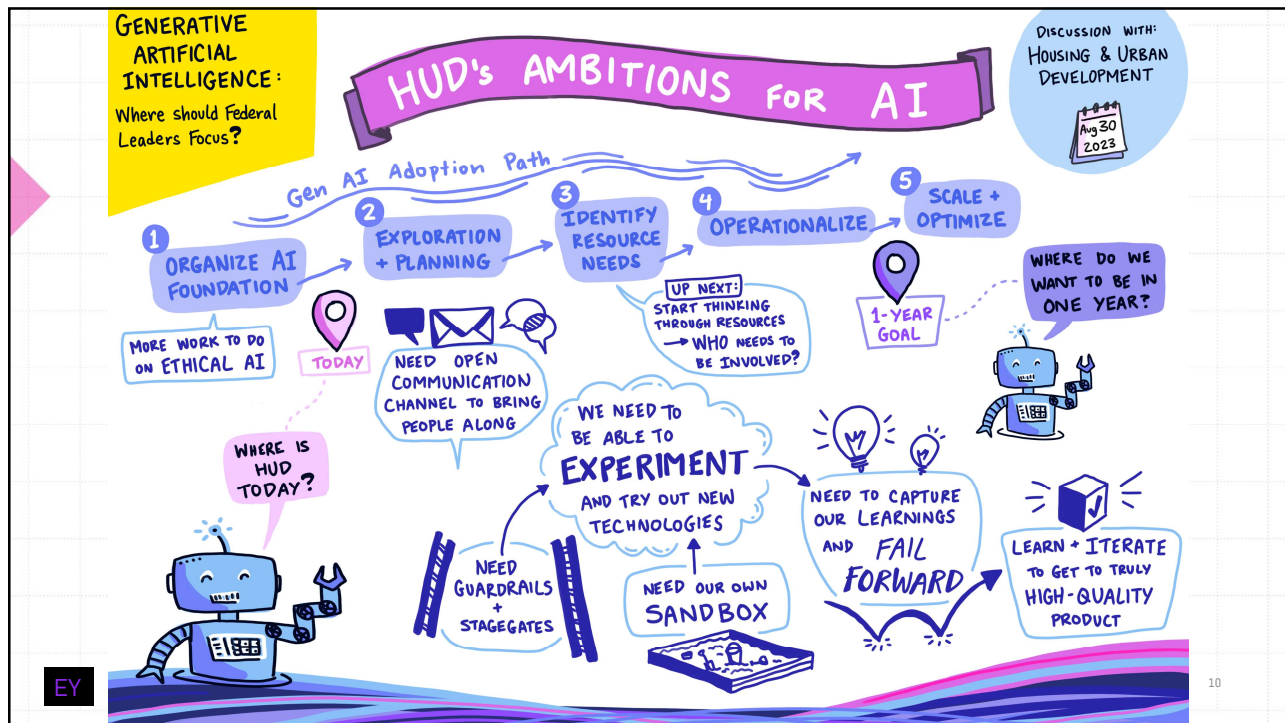 GENERATIVE
ARTIFICIAL
INTELLIGENCE:
Where should Federal
Leaders Focus?
HUD's AMBITIONS FOR AI
DISCUSSION WITH:
HOUSING & URBAN
DEVELOPMENT
Aug 30
2023
Gen AI Adoption Path
1
ORGANIZE AI
FOUNDATION
2
EXPLORATION
+ PLANNING
3
IDENTIFY
RESOURCE
NEEDS
4
OPERATIONALIZE
5
SCALE +
OPTIMIZE
MORE WORK TO DO
ON ETHICAL AI
TODAY
NEED OPEN
COMMUNICATION
CHANNEL TO BRING
PEOPLE ALONG
UP NEXT:
START THINKING
THROUGH RESOURCES
→ WHO NEEDS TO
BE INVOLVED?
1-YEAR
GOAL
WHERE DO WE
WANT TO BE IN
ONE YEAR?
WHERE IS
HUD
TODAY?
WE NEED TO
BE ABLE TO
EXPERIMENT
AND TRY OUT NEW
TECHNOLOGIES
NEED
GUARDRAILS
+
STAGEGATES
NEED OUR OWN
SANDBOX
NEED TO CAPTURE
OUR LEARNINGS
AND FAIL
FORWARD
LEARN + ITERATE
TO GET TO TRULY
HIGH-QUALITY
PRODUCT
EY
10